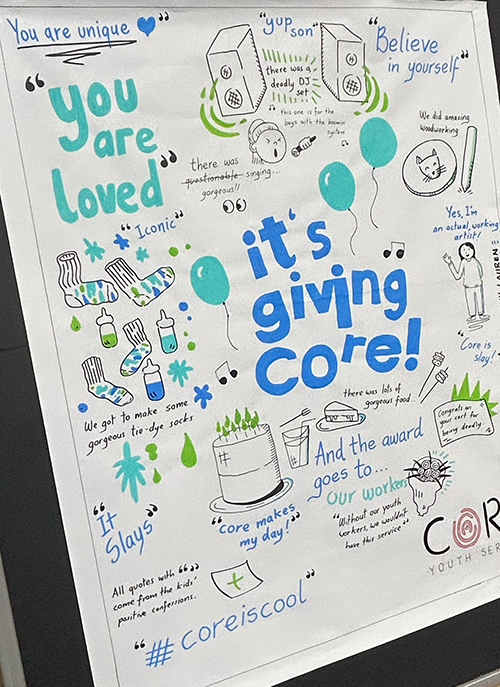 You are unique
"yup
son"
Believe
in yourself"
"you
are
loved"
there was a
deadly DJ
set
this one is for the
boys with the boomin
system
We did amazing
woodworking
there was
questionable singing...
gorgeous!!
"Iconic"
it's
giving
core!
Yes, I'm
an actual, working
artist!
LAUREN
"Core is
slay!"
We got to make some
gorgeous tie-dye socks
there was lots of
gorgeous food
Congrats on
your cert for
being deadly
And the award
goes to...
our workers
"Without our youth
workers, we wouldn't
have this service"
"It
Slays"
"Core makes
my day!"
All quotes with " "
come from the kids'
positive confessions.
"#coreiscool"
COR
YOUTH SER